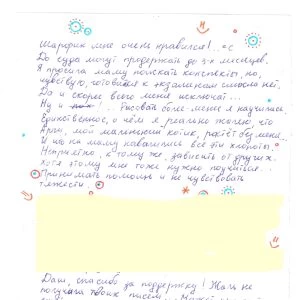 Шарфик мне очень нравился! :с
До суда могут продержать до 3-х месяцев.
Я просила маму поискать конспекты, но,
чувствую, готовиться к экзаменам смысла нет.
Да и скорее всего меня исключат...
Ну и !.. Рисовать более-менее я научилась.
Единственное, о чём я реально жалею, что
мой маленький котик, растёт без меня...
И что на маму навалились все эти хлопоты.
Неприятно, к тому же, зависеть от других.
Хотя этому мне тоже нужно поучиться...
Принимать помощь и не чувствовать
тяжести.
Даш, спасибо за поддержку! Жаль не
получать твоих писем... Может